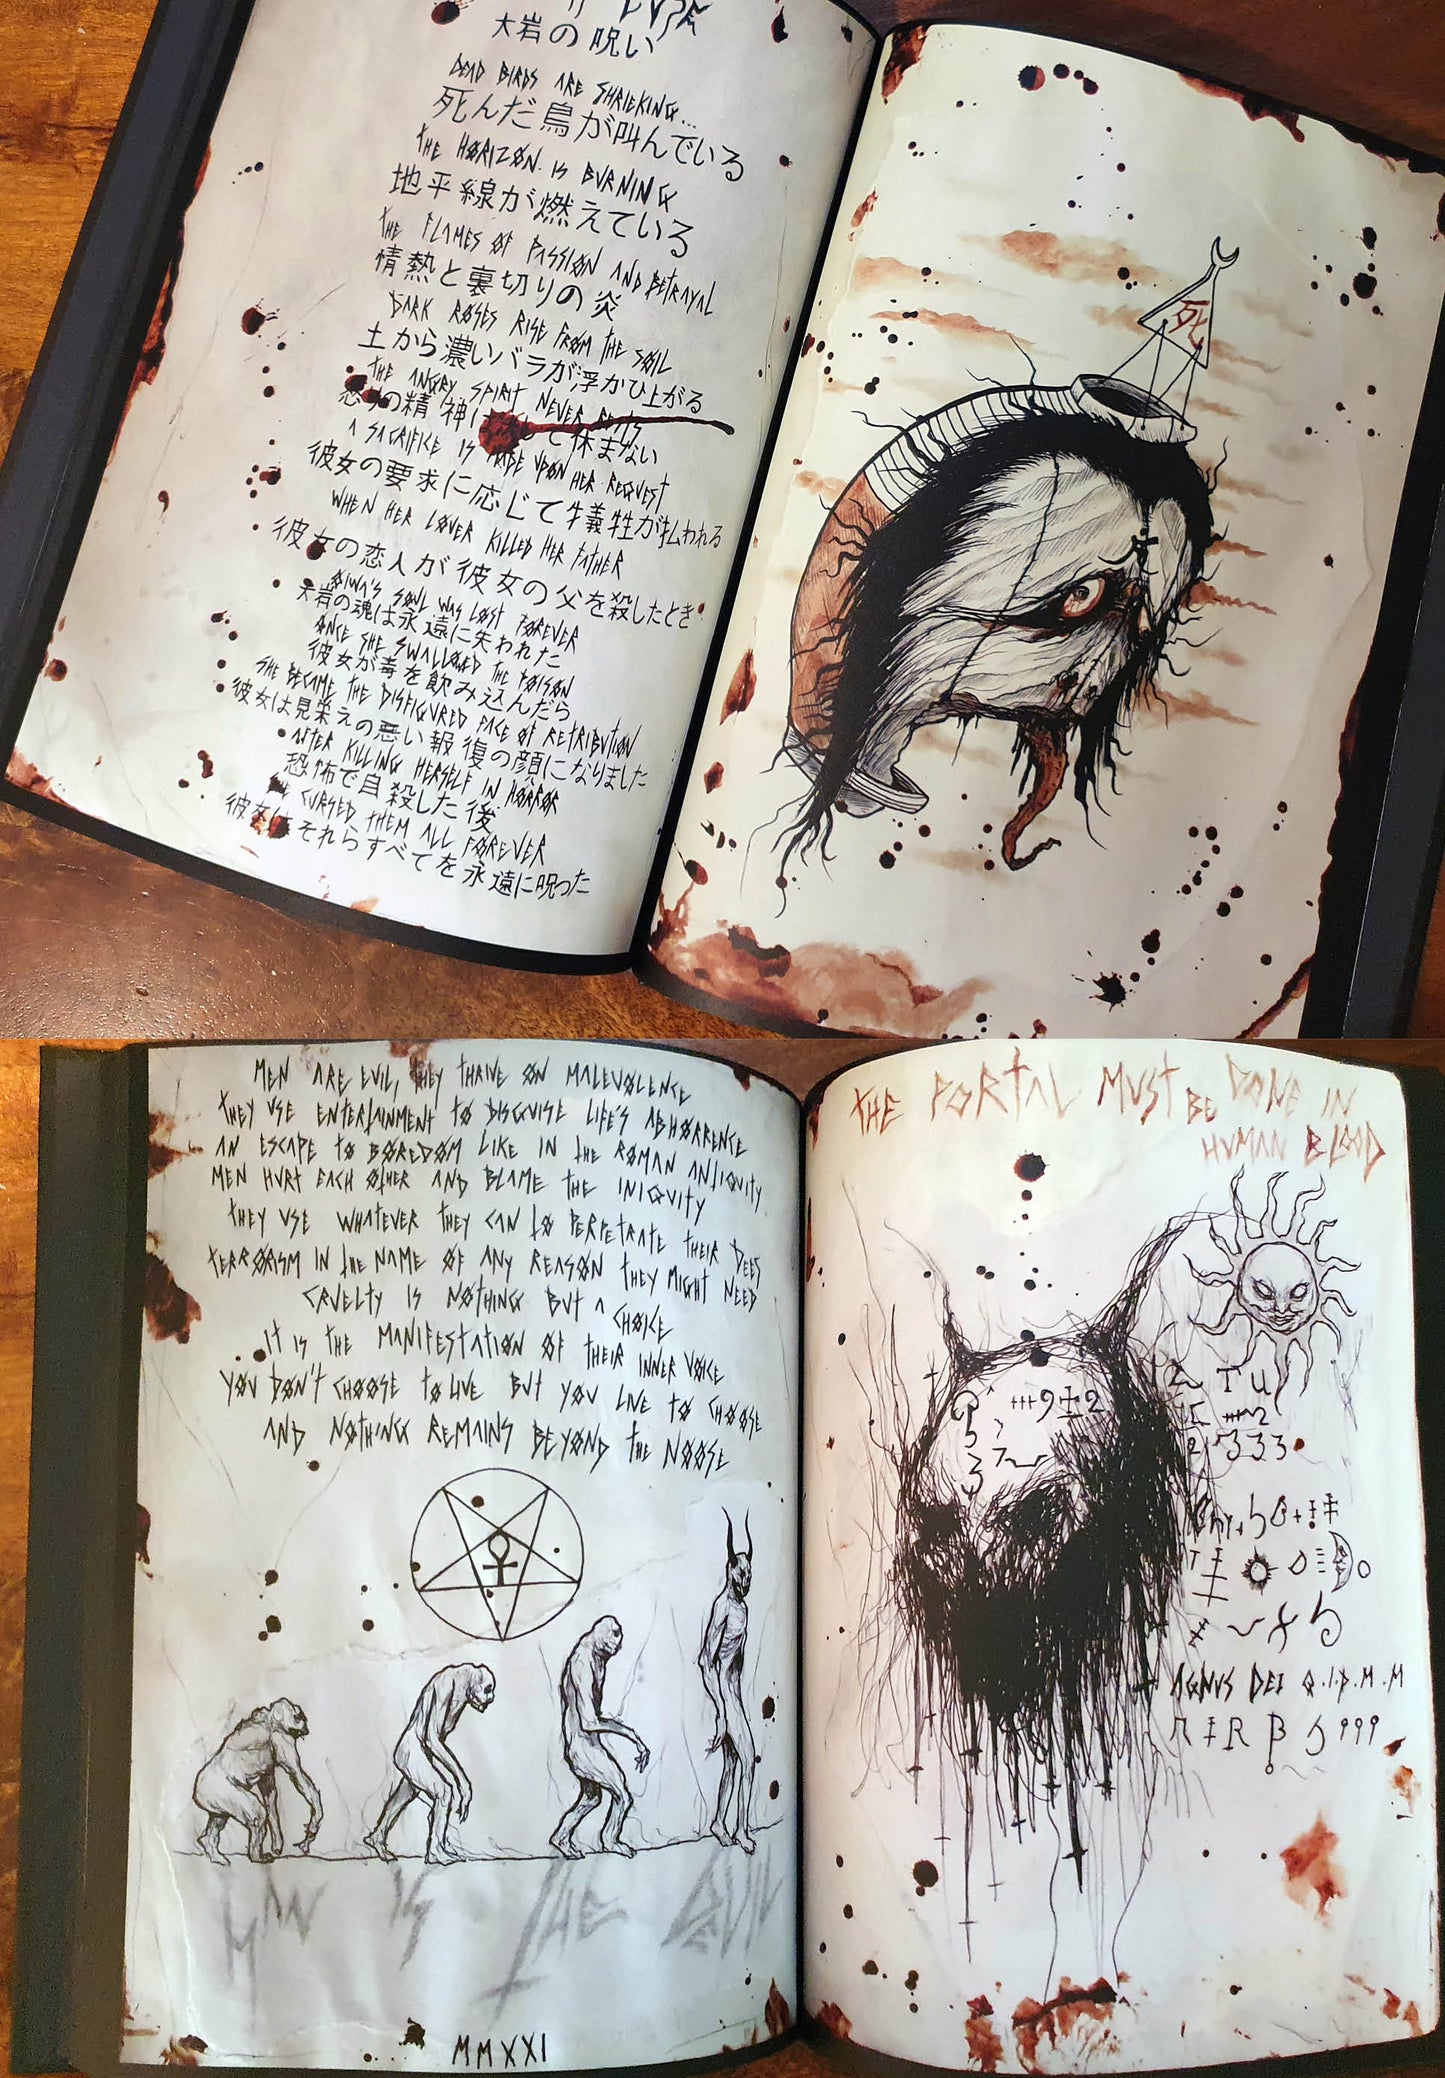 大岩の呪い
DEAD BIRDS ARE SHRIEKING...
死んだ鳥が叫んでいる
THE HORIZON IS BURNING
地平線が燃えている
THE FLAMES OF PASSION AND BETRAYAL
情熱と裏切りの炎
DARK ROSES RISE FROM THE SOIL
土から濃いバラが浮かび上がる
THE ANGRY SPIRIT NEVER RESTS
の精神は て休まない
A SACRIFICE IS MADE UPON HER REQUEST
彼女の要求に応じて牛義牲が払われる
WHEN HER LOVER KILLED HER FATHER
彼女の恋人が彼女の父を殺したとき
OIWA'S SOUL WAS LOST FOREVER
大岩の魂は永遠に失われた
ONCE SHE SWALLOWED THE POISON
彼女が毒を飲み込んだら
SHE BECAME THE DISFIGURED FACE OF RETRIBUTION
彼女は見栄えの悪い報復の顔になりました
AFTER KILLING HERSELF IN HORROR
恐怖で自殺した後
CURSED THEM ALL FOREVER
彼女はそれらすべてを永遠に呪った
死
MEN ARE EVIL, THEY THRIVE ON MALEVOLENCE
THEY USE ENTERTAINMENT TO DISGUISE LIFE'S ABHORRENCE
AN ESCAPE TO BOREDOM LIKE IN THE ROMAN ANTIQUITY
MEN HURT EACH OTHER AND BLAME THE INIQUITY
THEY USE WHATEVER THEY CAN TO PERPETRATE THEIR DEES
TERRORISM IN THE NAME OF ANY REASON THEY MIGHT NEED
CRUELTY IS NOTHING BUT A CHOICE
IT IS THE MANIFESTATION OF THEIR INNER VOICE
YOU DON'T CHOOSE TO LIVE BUT YOU LIVE TO CHOOSE
AND NOTHING REMAINS BEYOND THE NOOSE
MAN IS THE DEVIL
MMXXI
THE PORTAL MUST BE DONE IN
HUMAN BLOOD
AGNUS DEI Q.I.P.M.M